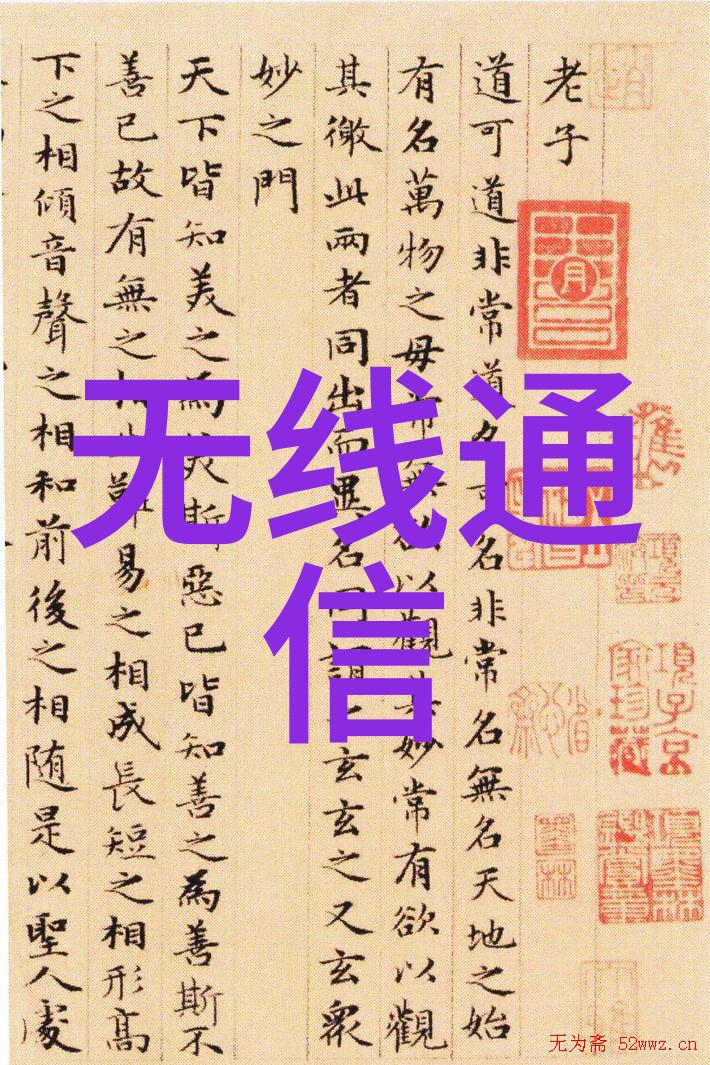 老子
道可道非常道名可名非常名無名天地之始
有名萬物之母常無欲以觀其妙常有欲以觀
其徼此兩者同出而異名同謂之玄玄之又玄衆
妙之門
天下皆知美之為美斯惡已皆知善之為善斯不
善已故有無之相生難易之相成長短之相形高
下之相傾音聲之相和前後之相随是以聖人處
无线通
信
項子京
家珍藏
无为斋 52wwz.cn